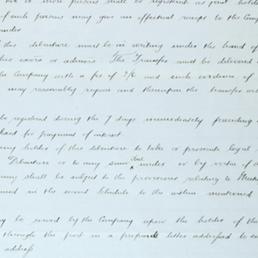 two or more persons shall be registered as joint hold
of such persons may give an effectual receipt to the Comp
under
of this debenture must be in writing under the hand of
his exors or admors. The Transfer must be delivered
the Company with a fee of 2/6 and such evidence of
may reasonably require and thereupon the transfer will
be registered during the 7 days immediately preceding
for payment of interest
holder of this debenture to take or presents legal
Debenture or to any sum due under or by virtue of
shall be subject to the provisions relating to
in the second Schedule to the within mentioned
may be served by the Company upon the holder of this
through the post in a prepaid letter addressed to
address